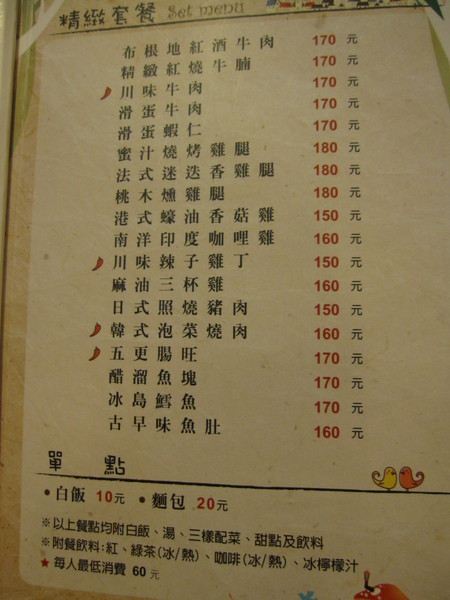 精緻套餐 Set menu
布根地紅酒牛肉 170 元
精緻紅燒牛腩 170 元
川味牛肉 170 元
滑蛋牛肉 170 元
滑蛋蝦仁 170 元
蜜汁燒烤雞腿 180 元
法式迷迭香雞腿 180 元
桃木燻雞腿 180 元
港式蠔油香菇雞 150 元
南洋印度咖哩雞 160 元
川味辣子雞丁 150 元
麻油三杯雞 160 元
日式照燒豬肉 150 元
韓式泡菜燒肉 160 元
五更腸旺 170 元
醋溜魚塊 170 元
冰島鱈魚 170 元
古早味魚肚 160 元
單點
•白飯 10元 •麵包 20元
※以上餐點均附白飯、湯、三樣配菜、甜點及飲料
※附餐飲料:紅、綠茶(冰/熱)、咖啡(冰/熱)、冰檸檬汁
★每人最低消費 60 元